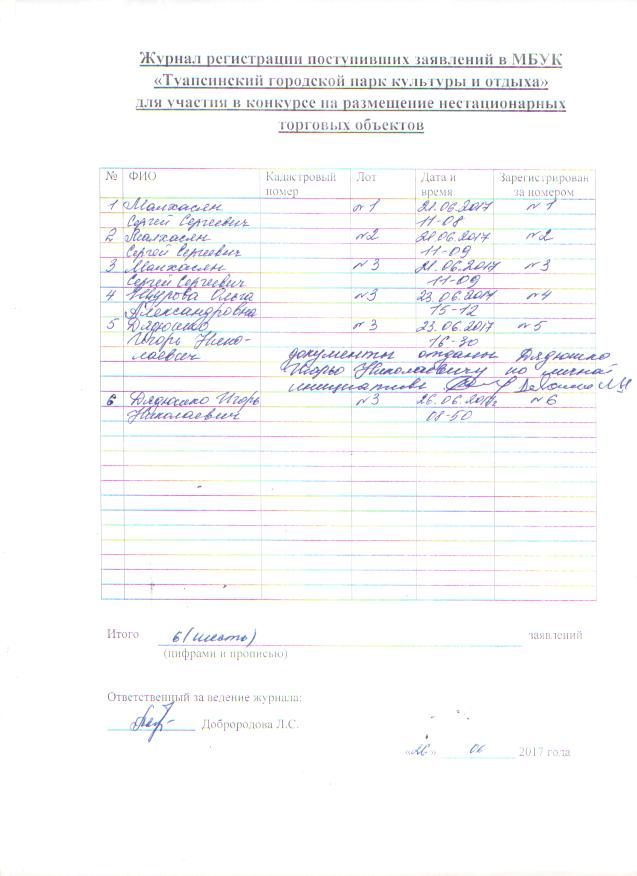 Журнал регистрации поступивших заявлений в МБУК
«Туапсинский городской парк культуры и отдыха»
для участия в конкурсе на размещение нестационарных
торговых объектов
№ ФИО Кадастровый номер Лот Дата и время Зарегистрирован за номером
1 Малхасян №1 21.06.2017 №1
Сергей Сергеевич 11-08
2 Малхасян №2 21.06.2017 №2
Сергей Сергеевич 11-09
3 Малхасян №3 21.06.2017 №3
Сергей Сергеевич 11-09
4 Шурова Ольга №3 23.06.2017 №4
Александровна 15-12
5 Дядюшко №3 23.06.2017 №5
Игорь Нико- 16-30
лаевич документы отданы Дядюшко
Игорю Николаевичу по личной
инициативе
6 Дядюшко Игорь №3 26.06.2017г №6
Николаевич 08-50
Итого 6 (шесть) заявлений
(цифрами и прописью)
Ответственный за ведение журнала:
Доброродова Л.С.
«26» 06 2017 года